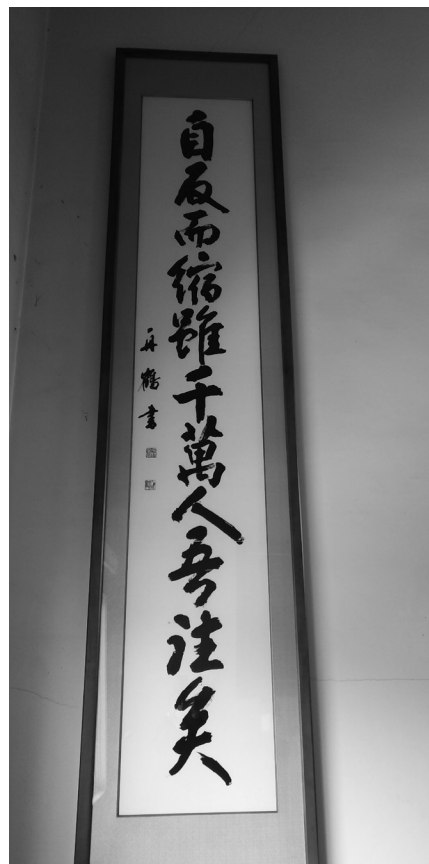 自反而縮雖千萬人吾往矣
丹鶴書